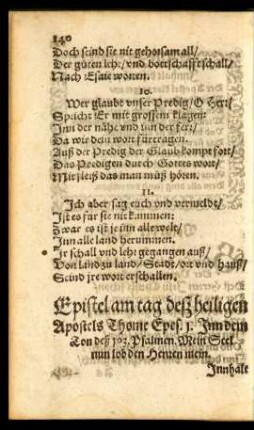 140
Doch seind sie nit gehorsam all/
Der guten lehr/ vnd bottschafft schall/
Nach Esaie worten.
10.
Wer glaubt vnser Predig/ O Herr/
Spricht Er mit grossem klagen:
Inn der nähe vnd inn der ferr/
Da wir dein wort fürtragen.
Auß der Predig der Glaub kompt fort/
Das Predigen durch Gottes wort/
Mit fleiß das man muß hören.
11.
Ich aber sag euch vnd vermeldt/
Ist es für sie nit kummen:
Zwar es ist je inn alle welt/
Inn alle land herummen.
Ir schall vnd lehr gegangen auß/
Von land zu land/ Stadt/ ort vnd hauß/
Seind jre wort erschallen.
Epistel am tag deß heiligen
Apostels Thome Epes. j. Inn dem
Ton deß 103. Psalmen. Mein Seel
nun lob den Herren mein.
Innhalt